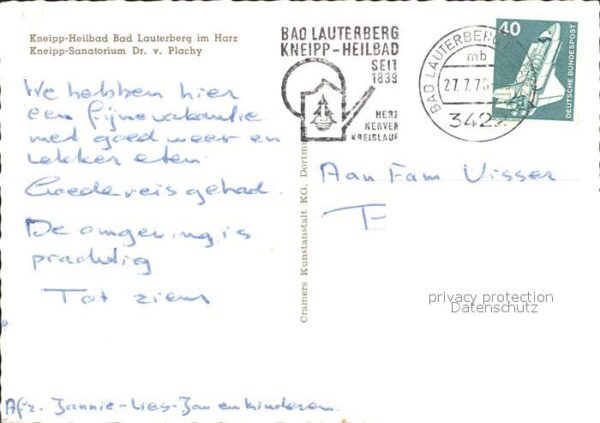 Kneipp-Heilbad Bad Lauterberg im Harz
Kneipp-Sanatorium Dr. v. Plachy
We hebben hier
een fijne vakantie
met goed weer en
lekker eten.
Goede reis gehad.
De omgeving is
prachtig
Tot ziens
Afz. Jannie-Lies-Jan en kinderen.
Cramers Kunstanstalt KG. Dortmund
BAD LAUTERBERG
KNEIPP-HEILBAD
SEIT
1839
HERZ
NERVEN
KREISLAUF
BAD LAUTERBERG
mb
27.7.76
3422
40
DEUTSCHE BUNDESPOST
Aan Fam Visser
privacy protection
Datenschutz